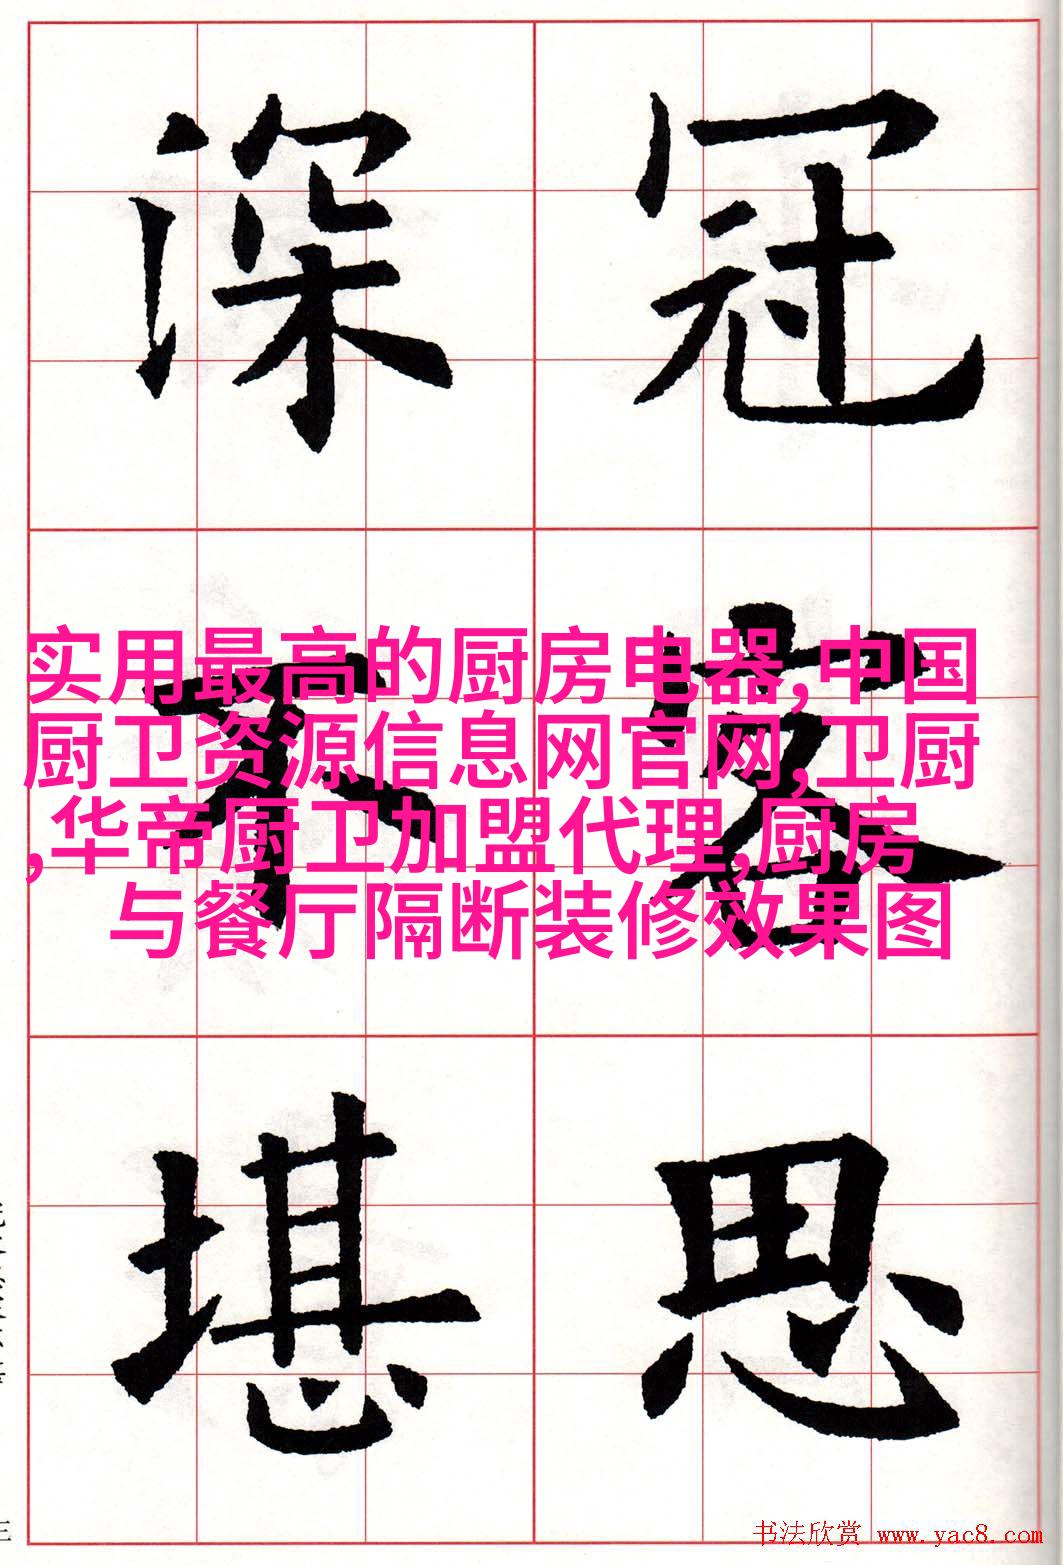 冠客思
深不堪
实用最高的厨房电器,中国
厨卫资源信息网官网,卫厨
,华帝厨卫加盟代理,厨房
与餐厅隔断装修效果图
书法欣赏 www.yac8.com